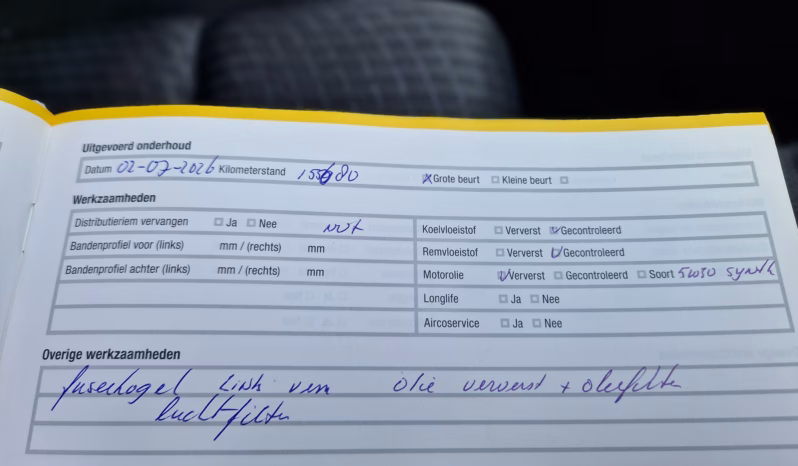 Uitgevoerd onderhoud
Datum 02-07-2026 Kilometerstand ☒ Grote beurt ☐ Kleine beurt ☐
Werkzaamheden
Distributieriem vervangen ☐ Ja ☐ Nee
Koelvloeistof ☐ Ververst ☑ Gecontroleerd
Bandenprofiel voor (links) mm / (rechts) mm
Remvloeistof ☐ Ververst ☑ Gecontroleerd
Bandenprofiel achter (links) mm / (rechts) mm
Motorolie ☑ Ververst ☐ Gecontroleerd ☐ Soort 5W30 synth
Longlife ☐ Ja ☐ Nee
Aircoservice ☐ Ja ☐ Nee
Overige werkzaamheden
fuseekogel links vern olie ververst + oliefilter
luchtfilter